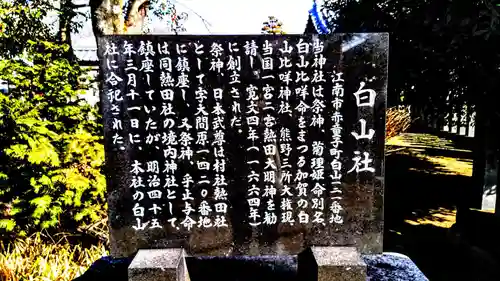 白山社
江南市赤童子町白山一二番地
当神社は祭神、菊理姫命別名、
白山比咩命をまつる加賀の白
山比咩神社、熊野三所大権現、
当国一宮二宮熱田大明神を勧
請し、寛文四年(一六六四年)
に創立された。
祭神、日本武尊は村社熱田社
として字大間原一四二〇番地
に鎮座し、又祭神、手正夫命
は同熱田社の境内神社として、
鎮座していたが、明治四十五
年三月十一日に、本社の白山
社に合記された。